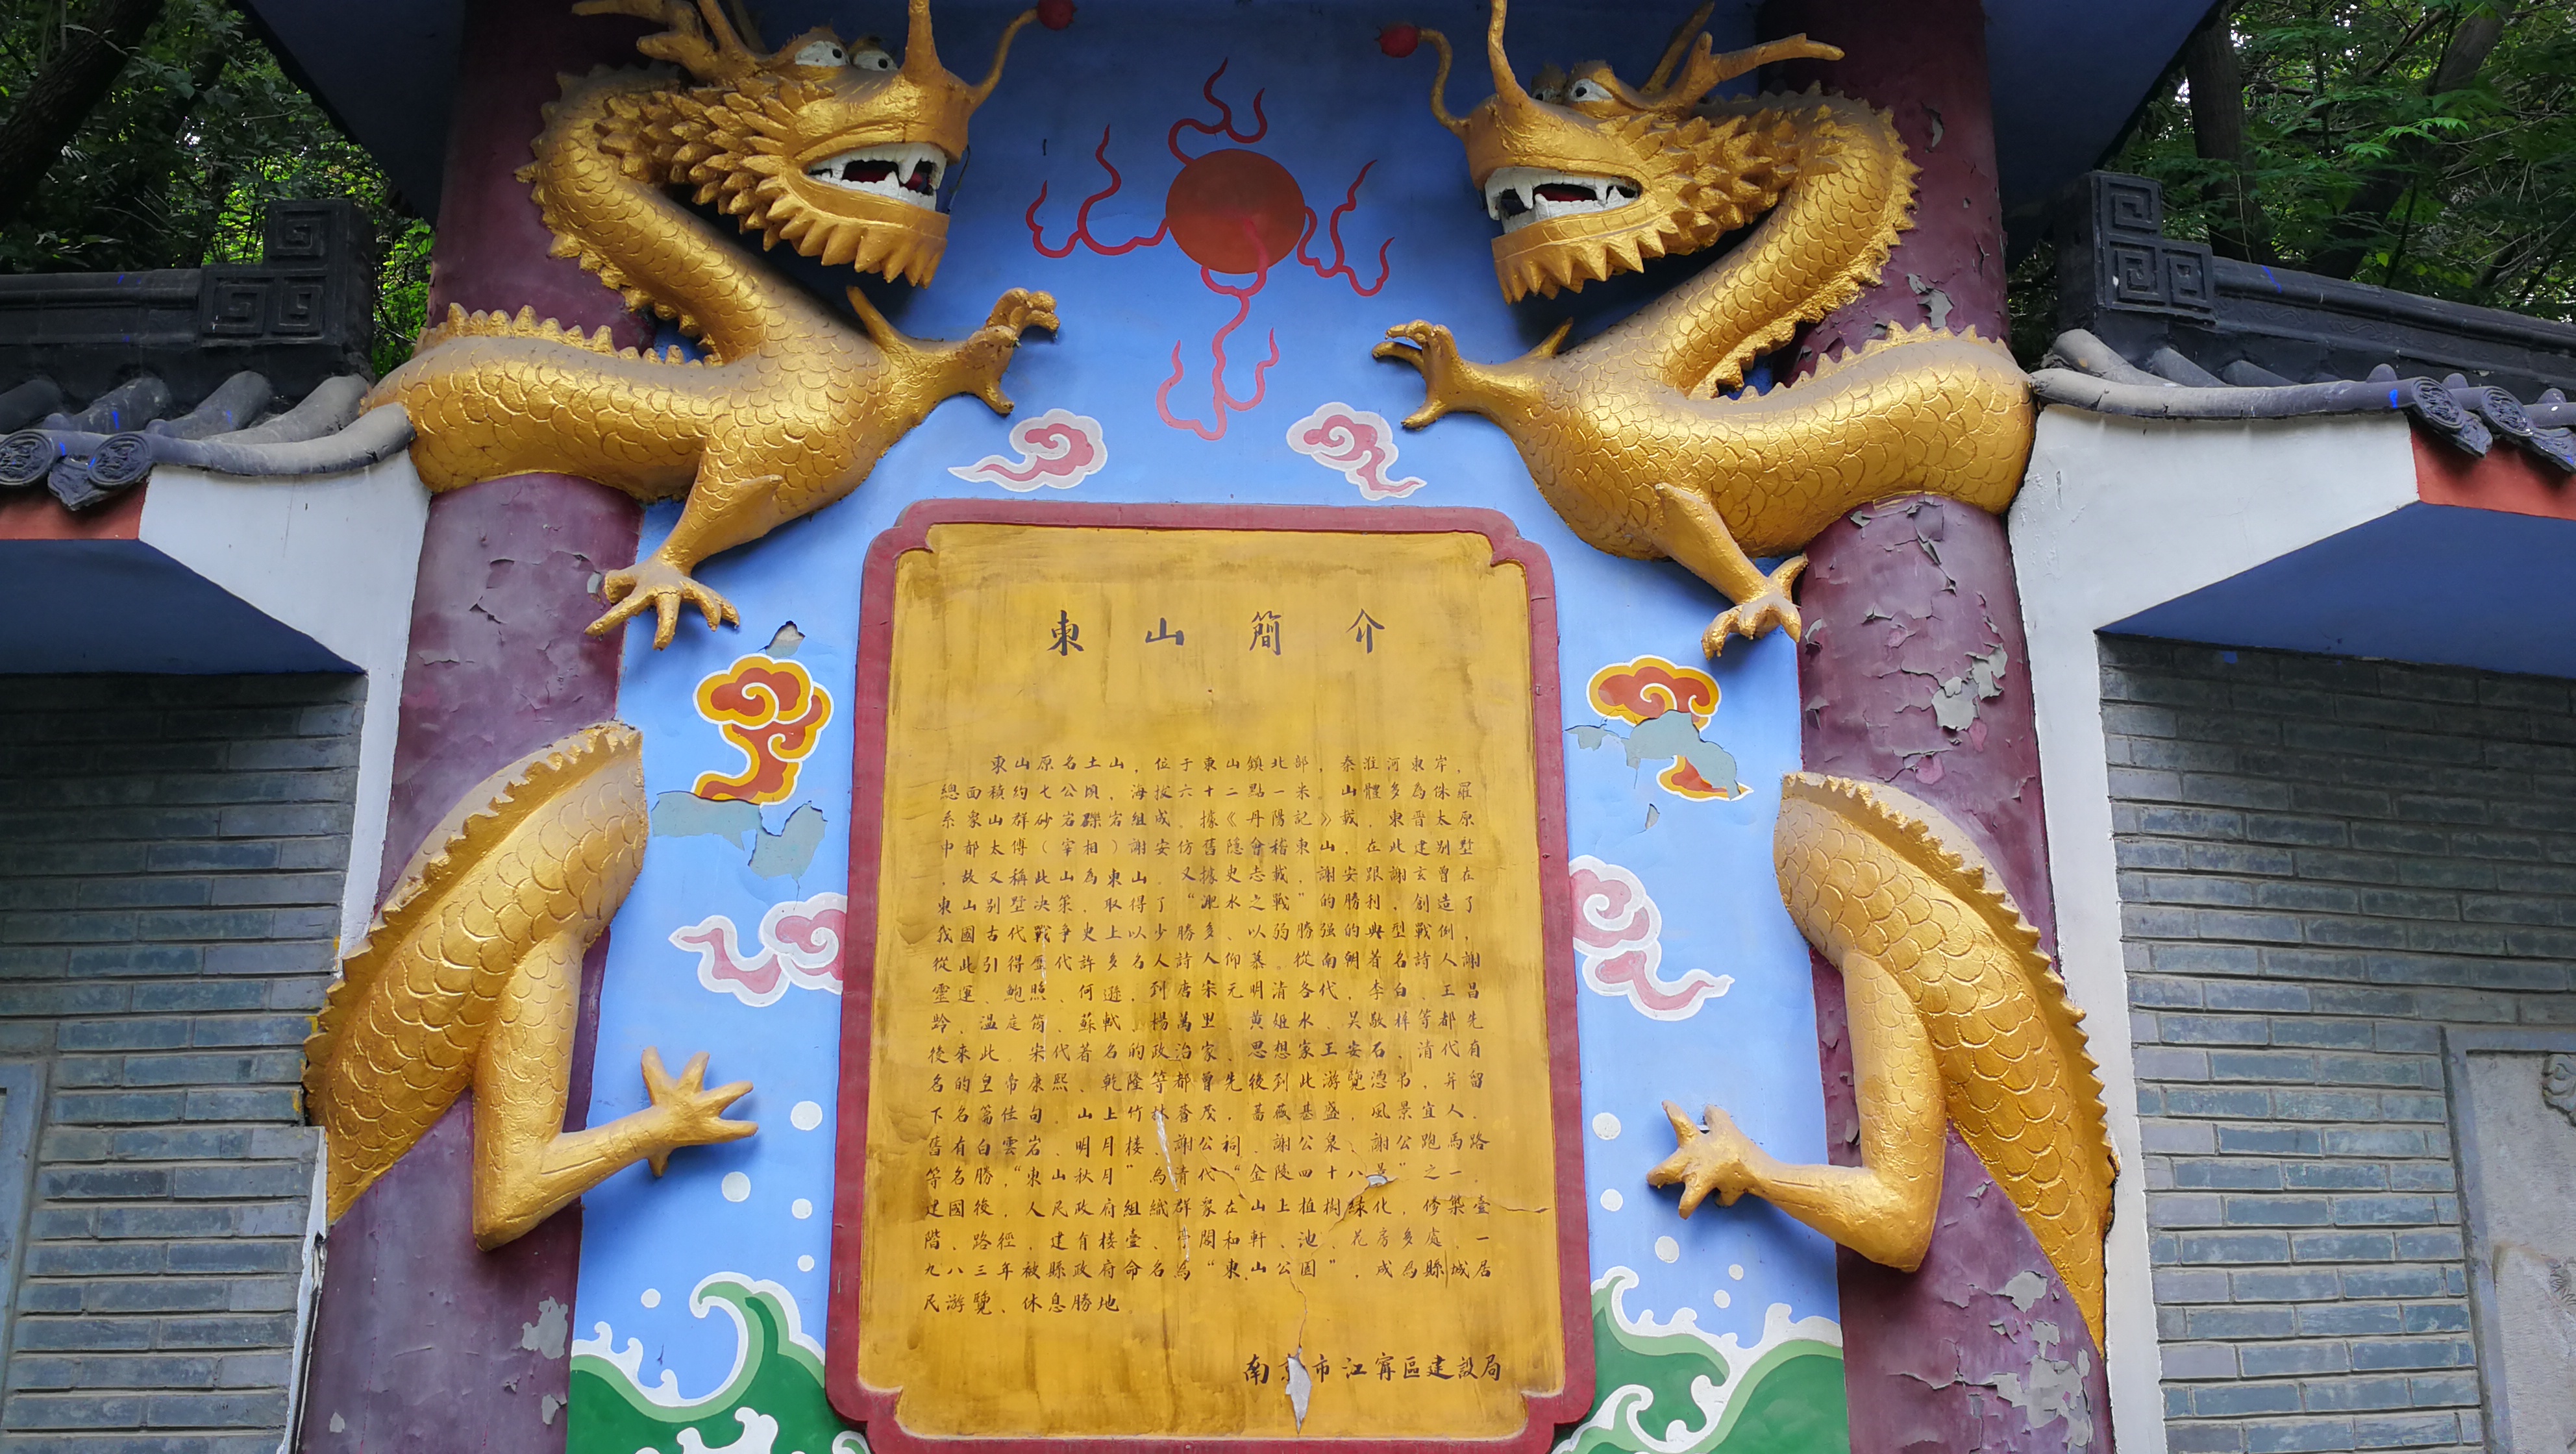 東山簡介
東山原名土山，位于東山鎮北部，秦淮河東岸，
總面積約七公頃，海拔六十二點一米。山體多為侏羅
系象山群砂岩礫岩組成。據《丹陽記》載，東晉太原
中都太傅（宰相）謝安仿舊隱會稽東山，在此建别墅
，故又稱此山為東山。又據史志載，謝安跟謝玄曾在
東山别墅决策，取得了“淝水之戰”的勝利，創造了
我國古代戰爭史上以少勝多、以弱勝强的典型戰例，
從此引得歷代許多名人詩人仰慕。從南朝著名詩人謝
靈運、鮑照、何遜，到唐宋元明清各代，李白、王昌
齡、温庭筠、蘇軾、楊萬里、黄姬水、吴敬梓等都先
後來此。宋代著名的政治家、思想家王安石、清代有
名的皇帝康熙、乾隆等都曾先後到此游覽憑吊，并留
下名篇佳句。山上竹林蒼茂，薔薇甚盛，風景宜人，
舊有白雲岩、明月樓、謝公祠、謝公泉、謝公跑馬路
等名勝，“東山秋月”為清代“金陵四十八景”之一。
建國後，人民政府組織群衆在山上植樹緑化，修築臺
階、路徑，建有樓臺、亭閣和軒、池、花房多處，一
九八三年被縣政府命名為“東山公園”，成為縣城居
民游覽、休息勝地。
南京市江寧區建設局